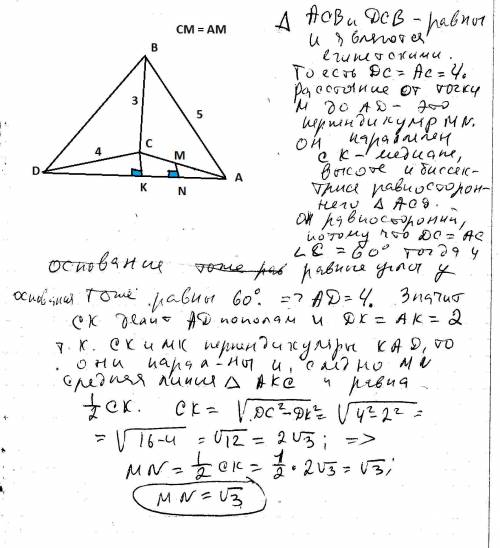 CM = AM
B
3
5
C
4
M
D
K
N
A
Δ АСВ и DCB - равны
и являются
египетскими.
То есть DC = AC = 4.
Расстояние от точки
М до AD - это
перпендикуляр MN.
Он параллелен
СК - медиане,
высоте и биссек-
трисе равносторон-
него Δ АСD.
Он равносторонний,
потому что DC = AC
∠C = 60° тогда у
основание тоже рав равние углы у
основания тоже равны 60°. => AD = 4. Значит
СК делит AD пополам и DK = AK = 2
т.к. СК и МК перпендикуляры к AD, то
они парал-ны и, следно MN
средняя линия Δ АКС и равна
1/2 СК. СК = √DC²-DK² = √4²-2² =
= √16-4 = √12 = 2√3; =>
MN = 1/2 CK = 1/2 · 2√3 = √3;
MN = √3